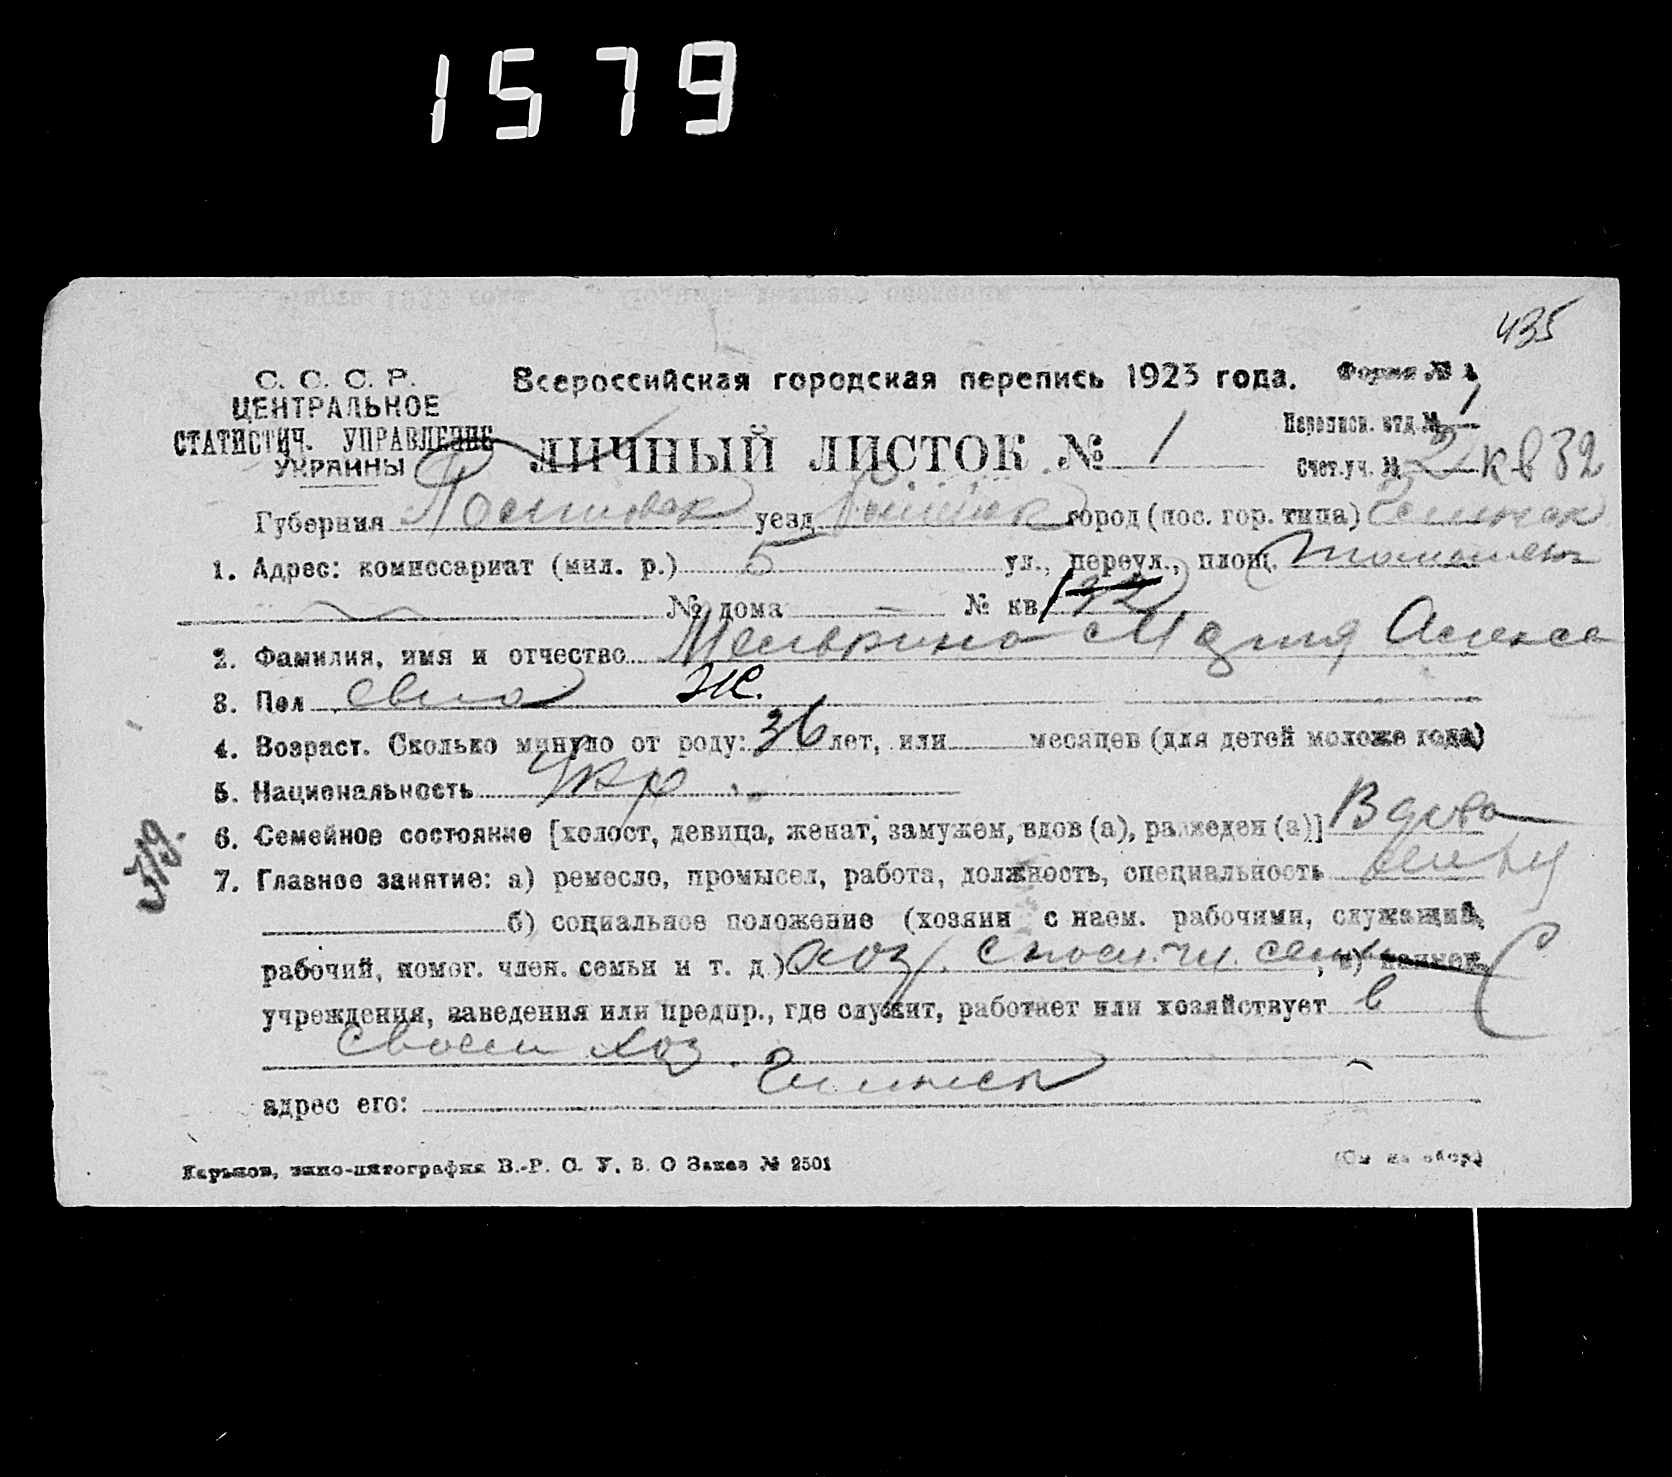 1579
435
С. С. С. Р.
ЦЕНТРАЛЬНОЕ
СТАТИСТИЧ. УПРАВЛЕНИЕ
УКРАИНЫ
Всероссийская городская перепись 1923 года.
Форма № 1
ЛИЧНЫЙ ЛИСТОК № 1
Переписн. отд. № 1
Счет. уч. № 2 кв 32
Губерния уезд город (пос. гор. типа)
1. Адрес: комиссариат (мил. р.) 5 ул., переул., площ.
№ дома — № кв.
2. Фамилия, имя и отчество Мария Алексе
3. Пол евна Ж.
4. Возраст. Сколько минуло от роду: 36 лет, или месяцев (для детей моложе года)
5. Национальность Укр
6. Семейное состояние [холост, девица, женат, замужем, вдов (а), разведен (а)] Вдова
7. Главное занятие: а) ремесло, промысел, работа, должность, специальность
б) социальное положение (хозяин с наем. рабочими, служащий,
рабочий, помог. член. семьи и т. д.) хоз. с пом. чл. семьи, в) наимен.
учреждения, заведения или предпр., где служит, работает или хозяйствует в
своем хоз.
адрес его:
Харьков, типо-цинкография В.-Р. С. У. В. О Заказ № 2501
(См на обор.)